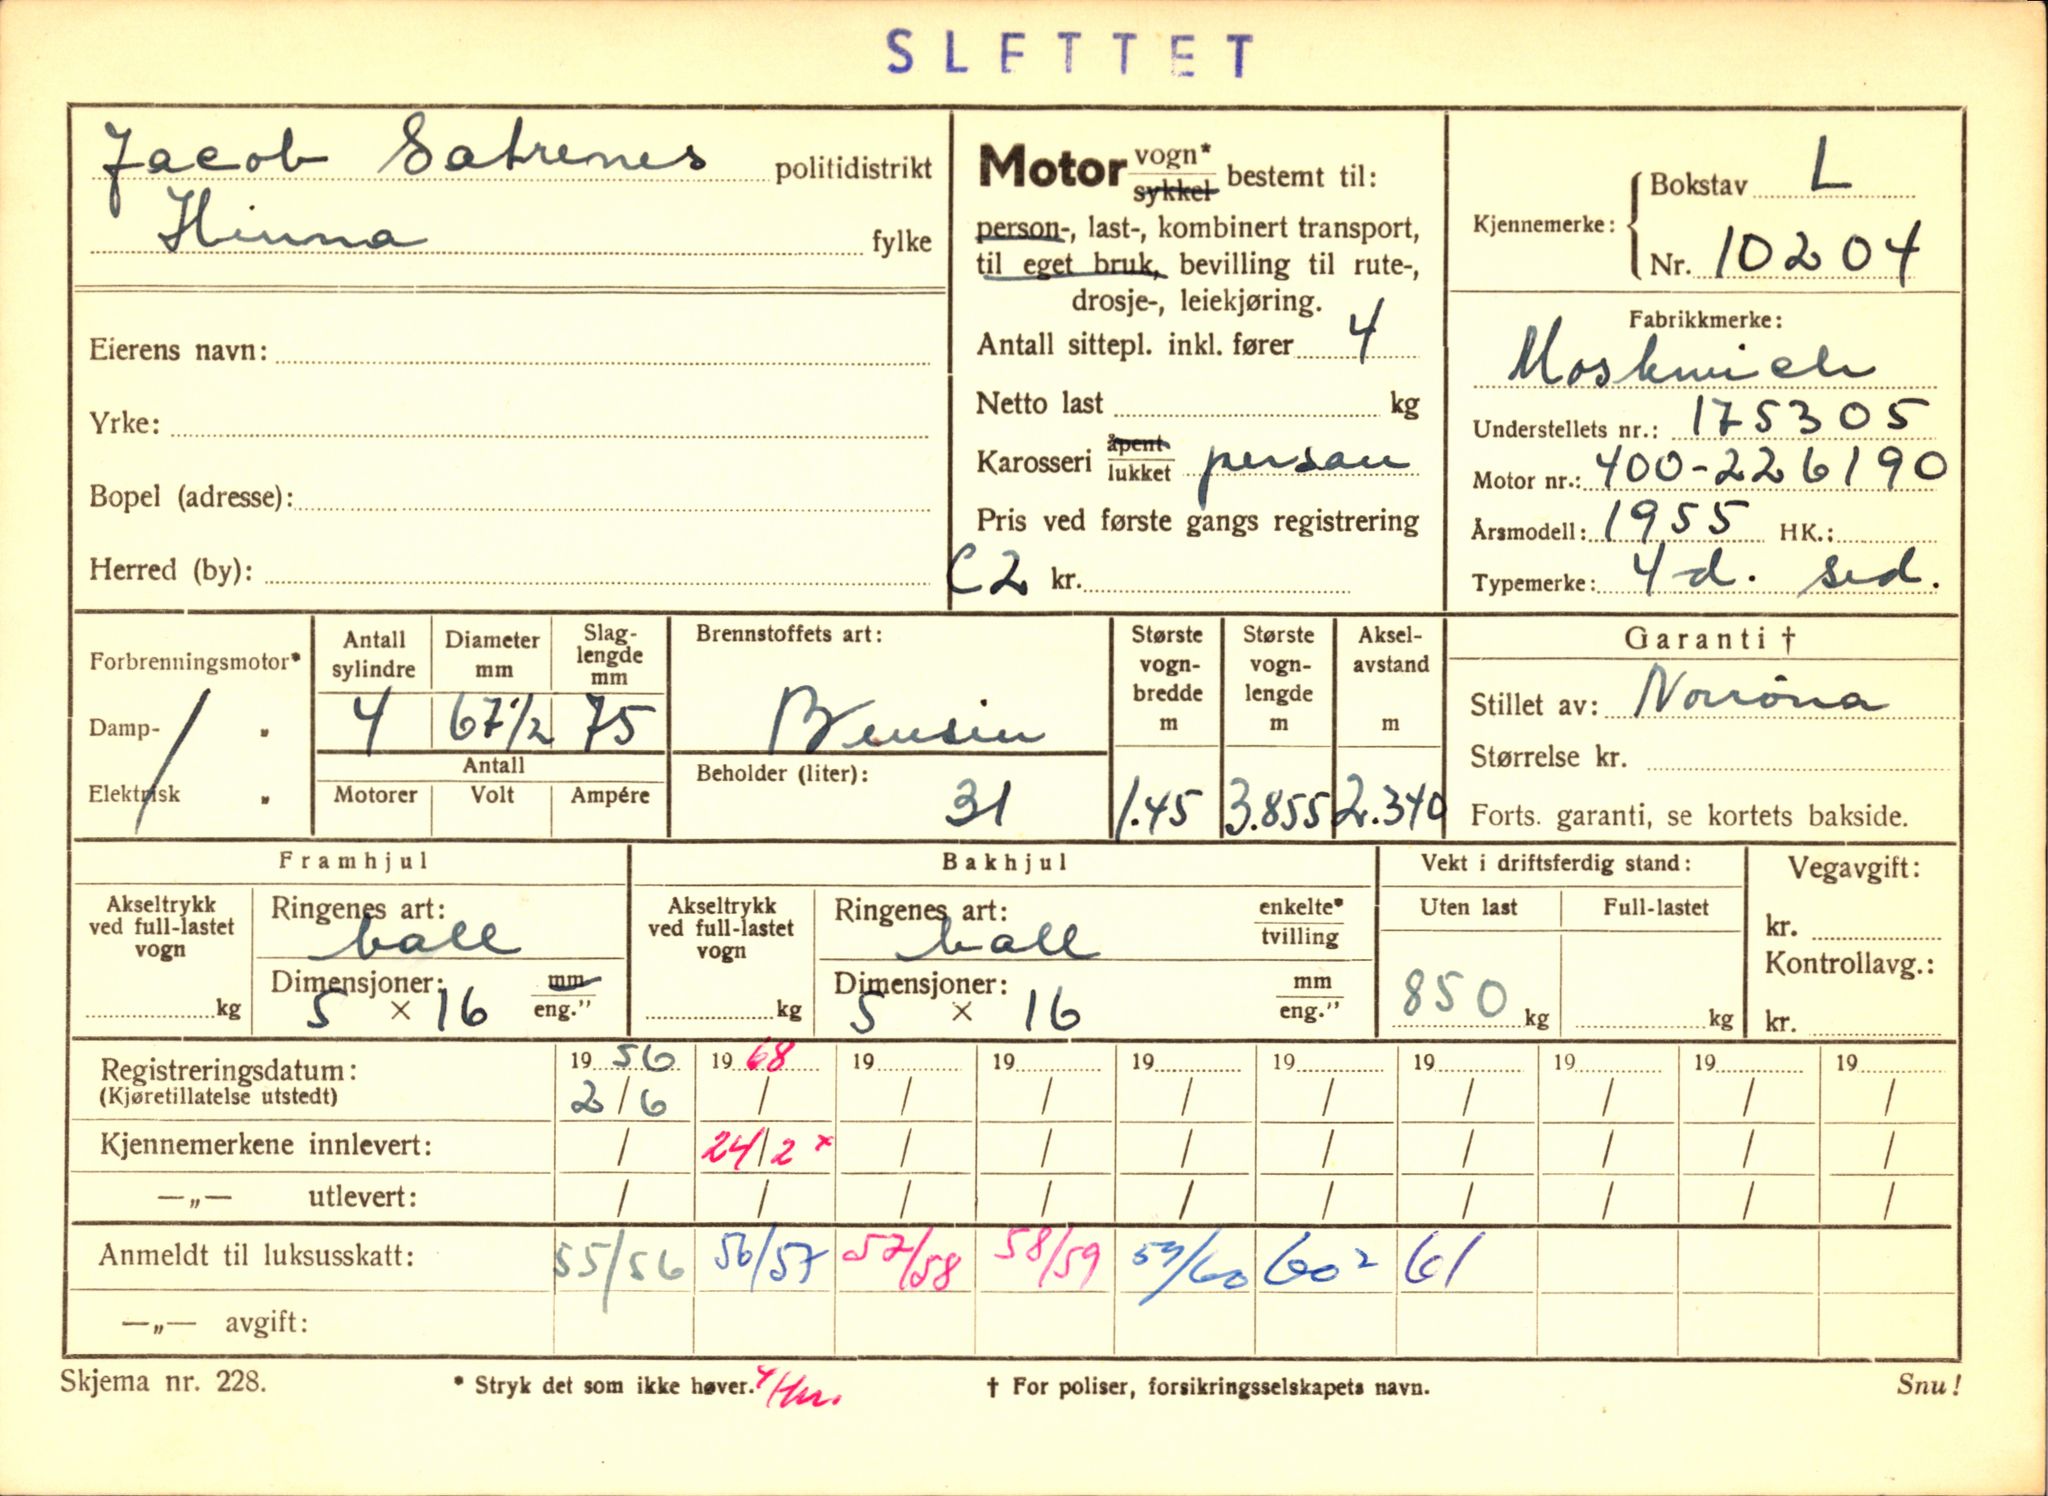 SLETTET
Jacob Satrenes politidistrikt
Hinna fylke
Eierens navn:
Yrke:
Bopel (adresse):
Herred (by):
Motor vogn* / sykkel bestemt til:
person-, last-, kombinert transport,
til eget bruk, bevilling til rute-,
drosje-, leiekjøring.
Antall sittepl. inkl. fører 4
Netto last kg
Karosseri åpent / lukket person
Pris ved første gangs registrering
C2 kr.
Kjennemerke: Bokstav L
Nr. 10204
Fabrikkmerke:
Moskwich
Understellets nr.: 175305
Motor nr.: 400-226190
Årsmodell: 1955 HK.:
Typemerke: 4 d. sed.
Forbrenningsmotor*
Damp- "
Elektrisk "
Antall sylindre Diameter mm Slag-lengde mm
4 67 1/2 75
Antall
Motorer Volt Ampére
Brennstoffets art:
Bensin
Beholder (liter):
31
Største vogn-bredde m
1.45
Største vogn-lengde m
3.855
Aksel-avstand m
2.340
Garanti †
Stillet av: Norröna
Størrelse kr.
Forts. garanti, se kortets bakside.
Framhjul
Akseltrykk ved full-lastet vogn
kg
Ringenes art:
ball
Dimensjoner: mm / eng."
5 × 16
Bakhjul
Akseltrykk ved full-lastet vogn
kg
Ringenes art: enkelte* / tvilling
ball
Dimensjoner: mm / eng."
5 × 16
Vekt i driftsferdig stand:
Uten last Full-lastet
850 kg kg
Vegavgift:
kr.
Kontrollavg.:
kr.
Registreringsdatum: 19 56 19 68 19 19 19 19 19 19 19 19
(Kjøretillatelse utstedt) 2/6 / / / / / / / / /
Kjennemerkene innlevert: / 24/2 x / / / / / / / /
—„— utlevert: / / / / / / / / / /
Anmeldt til luksusskatt: 55/56 56/57 57/58 58/59 59/60 60² 61
—„— avgift:
Skjema nr. 228. * Stryk det som ikke høver. † For poliser, forsikringsselskapets navn. Snu!